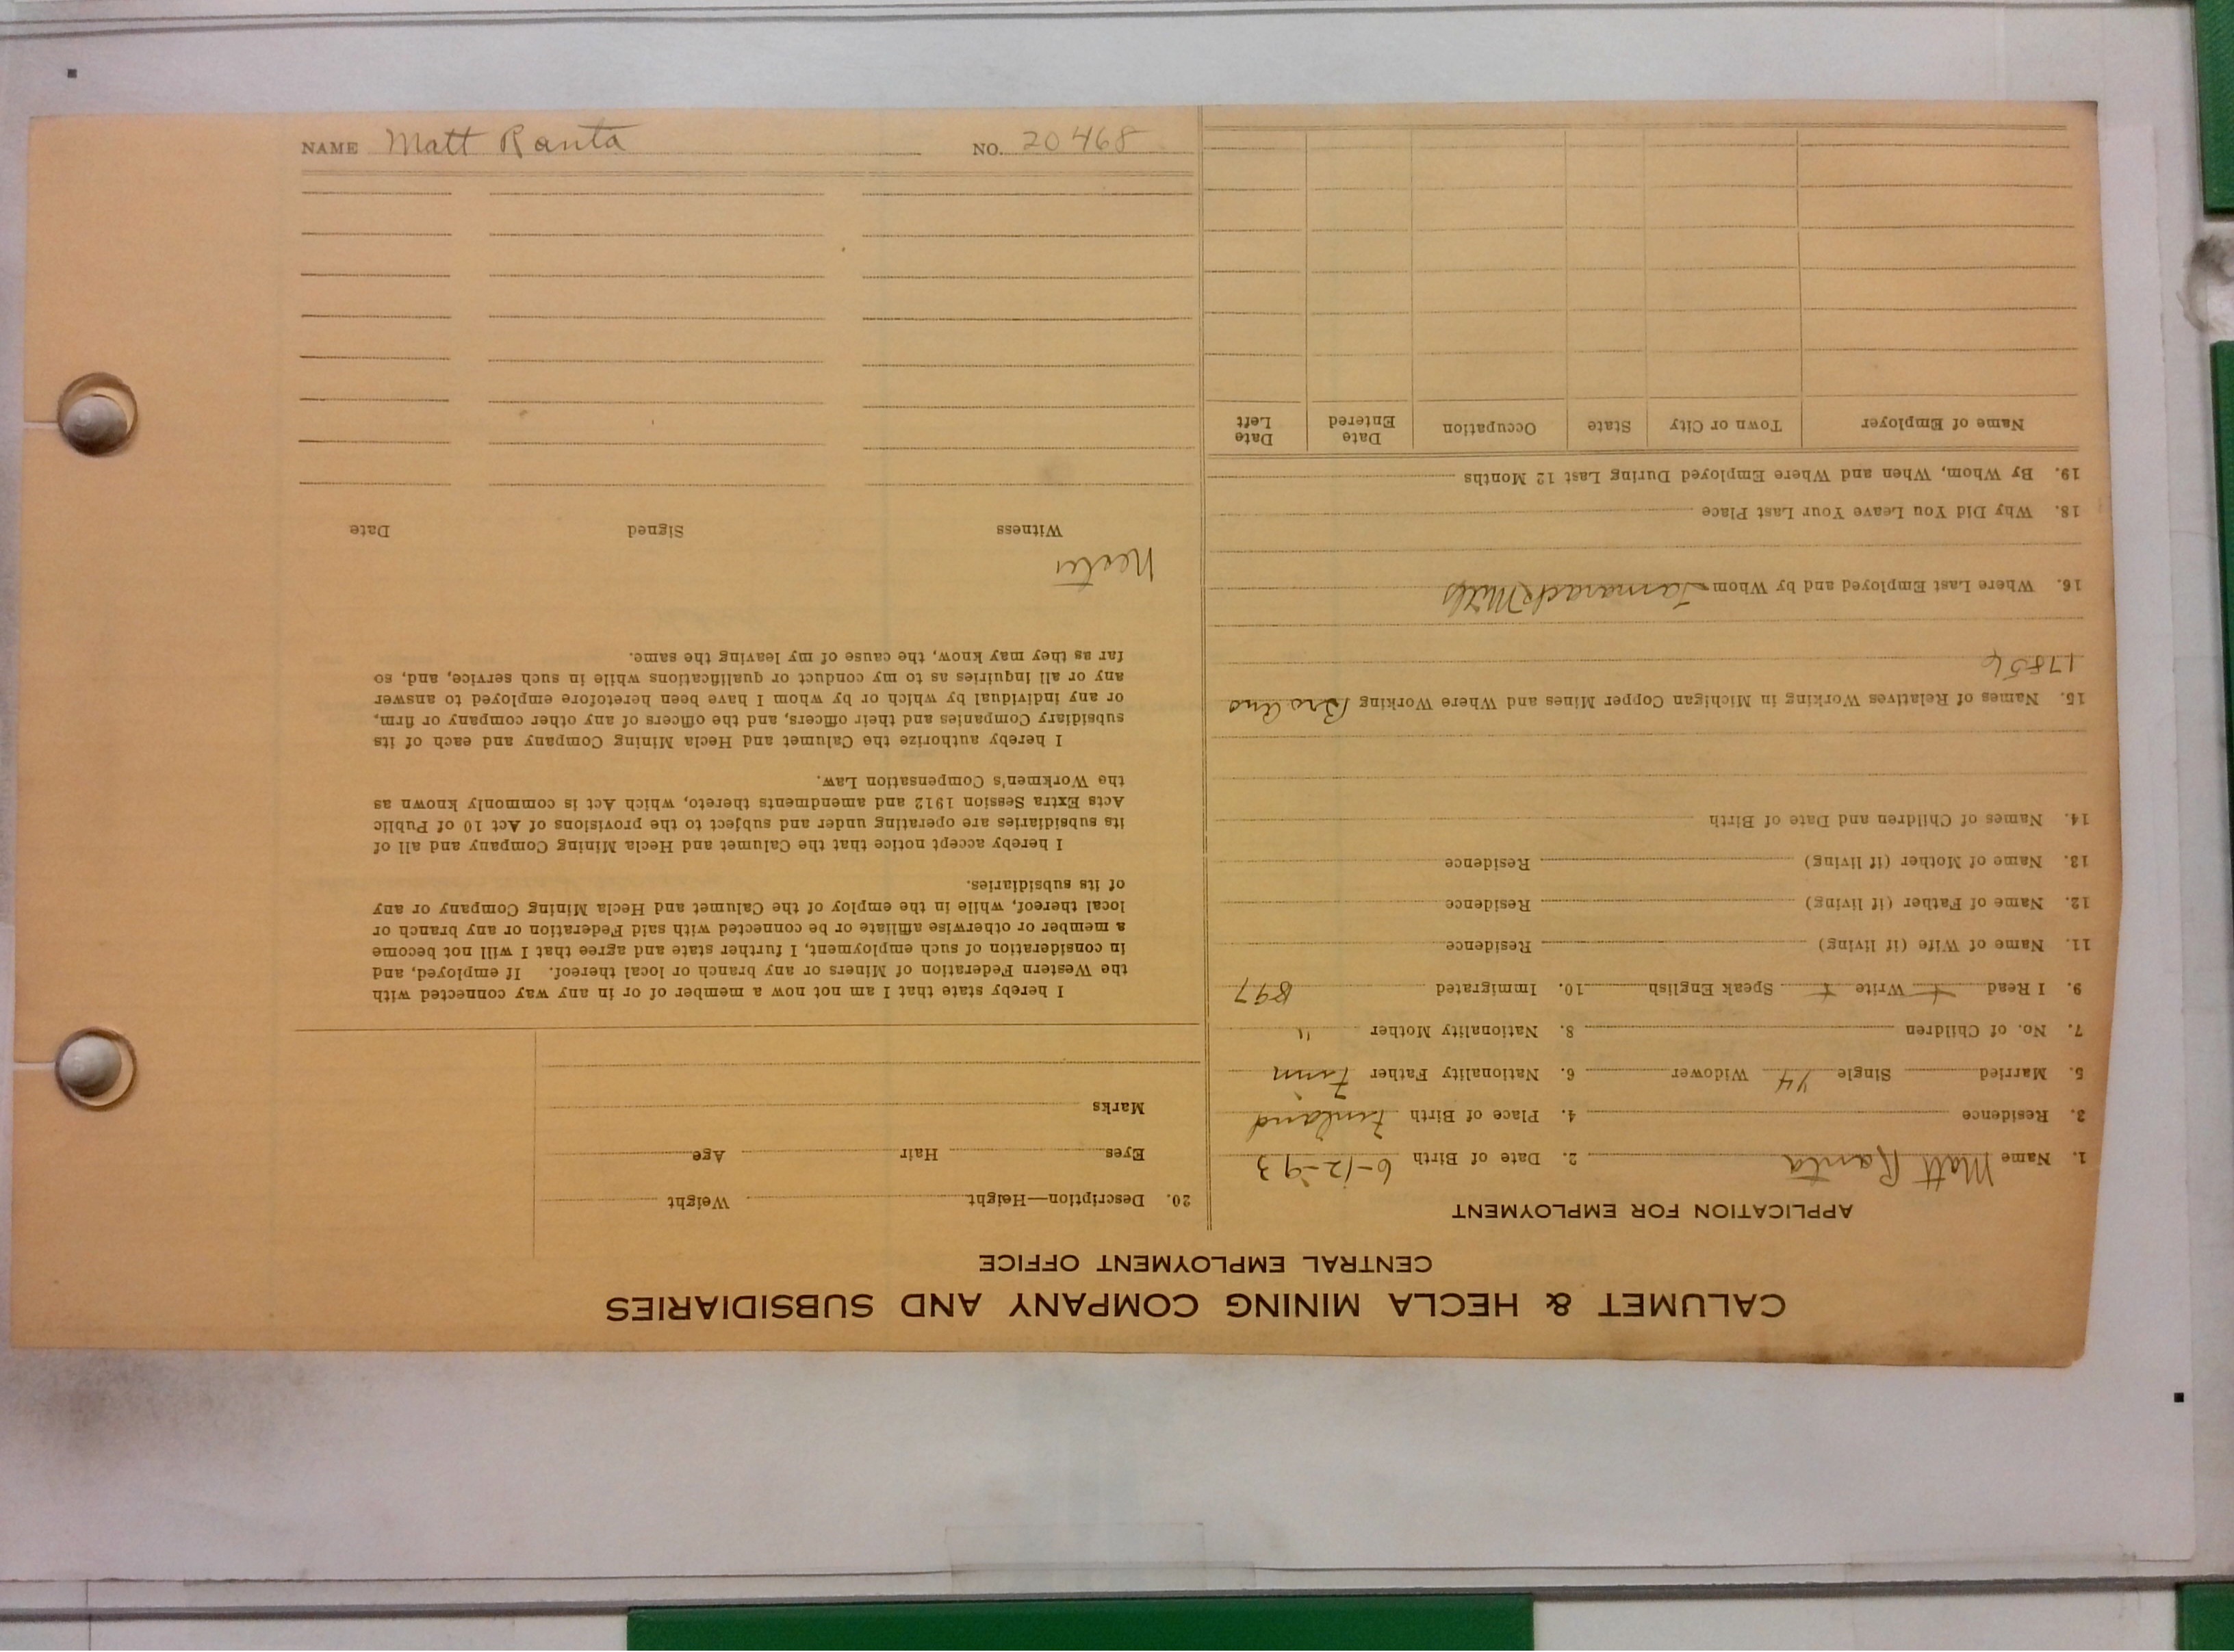 CALUMET & HECLA MINING COMPANY AND SUBSIDIARIES
CENTRAL EMPLOYMENT OFFICE
APPLICATION FOR EMPLOYMENT
1. Name Matt Ranta 2. Date of Birth 6-12-93
3. Residence 4. Place of Birth Finland
5. Married Single Widower 6. Nationality Father Finn
7. No. of Children 8. Nationality Mother "
9. I Read Write Speak English 10. Immigrated 897
11. Name of Wife (if living) Residence
12. Name of Father (if living) Residence
13. Name of Mother (if living) Residence
14. Names of Children and Date of Birth
15. Names of Relatives Working in Michigan Copper Mines and Where Working Bro
17856
16. Where Last Employed and by Whom Tamarack Mills
18. Why Did You Leave Your Last Place
19. By Whom, When and Where Employed During Last 12 Months
Name of Employer Town or City State Occupation Date Entered Date Left
20. Description—Height Weight
Eyes Hair Age
Marks
I hereby state that I am not now a member of or in any way connected with
the Western Federation of Miners or any branch or local thereof. If employed, and
in consideration of such employment, I further state and agree that I will not become
a member or otherwise affiliate or be connected with said Federation or any branch or
local thereof, while in the employ of the Calumet and Hecla Mining Company or any
of its subsidiaries.
I hereby accept notice that the Calumet and Hecla Mining Company and all of
its subsidiaries are operating under and subject to the provisions of Act 10 of Public
Acts Extra Session 1912 and amendments thereto, which Act is commonly known as
the Workmen's Compensation Law.
I hereby authorize the Calumet and Hecla Mining Company and each of its
subsidiary Companies and their officers, and the officers of any other company or firm,
or any individual by which or by whom I have been heretofore employed to answer
any or all inquiries as to my conduct or qualifications while in such service, and, so
far as they may know, the cause of my leaving the same.
Witness Signed Date
NAME Matt Ranta NO. 20468